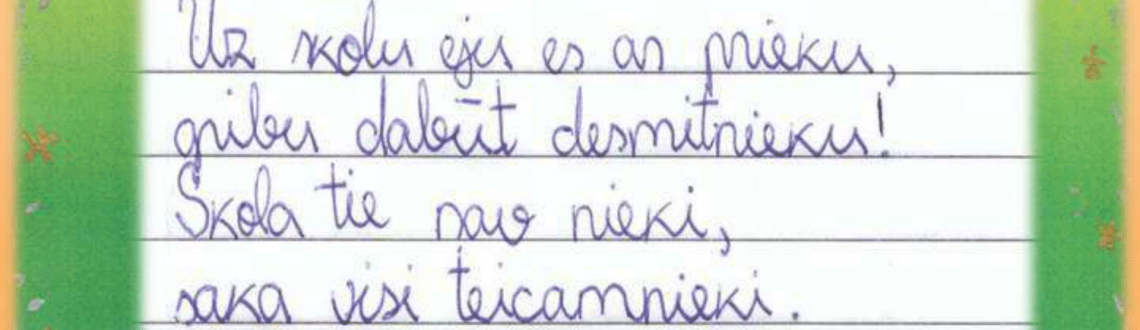 Uz skolu eju es ar prieku,
gribu dabūt desmitnieku!
Skola tie nav nieki,
saka visi teicamnieki.